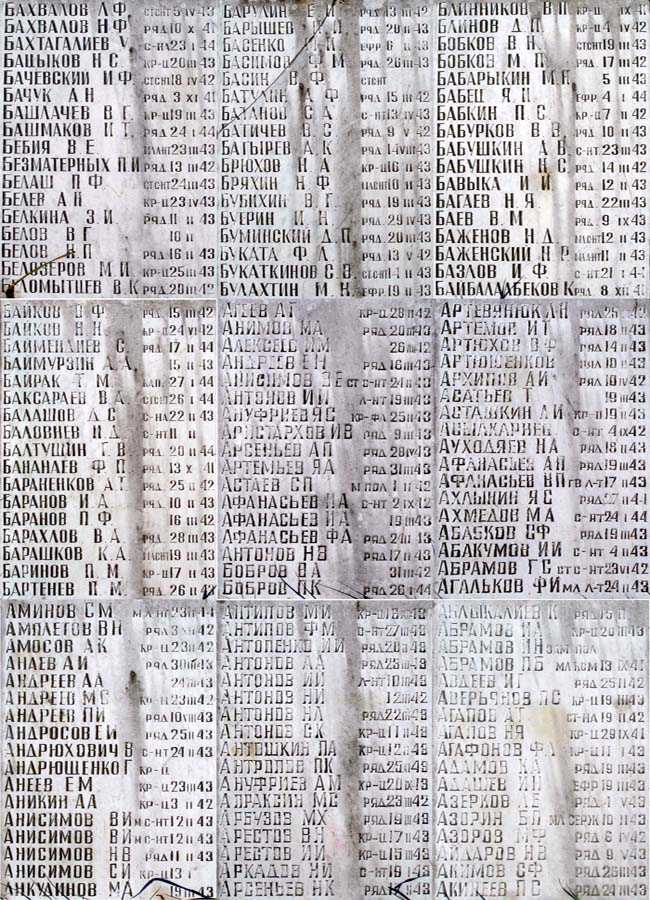 БАХВАЛОВ Л.Ф. СТСНТ 5 IV 43
БАХВАЛОВ Н.Ф. РЯД 10 X 41
БАХТАГАЛИЕВ У. С-НА 23 I 44
БАЦЫКОВ Н.С. КР-Ц 20 III 43
БАЧЕВСКИЙ И.Ф. СТСНТ 18 IV 42
БАЧУК А.Н РЯД 3 XI 41
БАШЛАЧЕВ В.Г. КР-Ц 19 III 43
БАШМАКОВ И.Т. РЯД 24 I 44
БЕБИЯ В.Е. МЛ.НТ 23 III 43
БЕЗМАТЕРНЫХ П.И. РЯД 13 III 42
БЕЛАШ П.Ф. СТСНТ 24 III 43
БЕЛЕВ А.Н. КР-Ц 23 IV 43
БЕЛКИНА З.И. РЯД 11 II 43
БЕЛОВ В.Г. 10 II
БЕЛОВ Н.П РЯД 16 II 43
БЕЛОЗЕРОВ М.И. КР-Ц 25 III 43
БЕЛОМЫТЦЕВ В.К РЯД 20 III 42
БАРУЛИН Е.И РЯД 13 III 42
БАРЫШЕВ РЯД 20 II 43
БАСЕНКО М.И. ЕФР 6 II 43
БАСИМОВ Ф.М. РЯД 26 III 43
БАСИН В.Ф. СТСНТ
БАТУЛИН А.Ф РЯД 15 III 42
БАТАНОВ С.А. С-НТ 13 IV 43
БАТИЧЕВ В.С. РЯД 9 V 42
БАТЫРЕВ А.К РЯД 14 VIII 43
БРЮХОВ Н.А КР-Ц 16 II 43
БРЯХИН Н.Ф. МЛСНТ 10 II 43
БУБИХИН В.Г. РЯД 9 IV 43
БУЕРИН И.Н. РЯД 29 IV 43
БУМИНСКИЙ Д.П. РЯД 20 III 43
БУКАТА Ф.А. РЯД 13 V 42
БУКАТКИНОВ С.В. СТСНТ 4 II 43
БУЛАХТИН М.Н. ЕФР 19 II 43
БЛИННИКОВ В.П КР-Ц IX 41
БЛИНОВ Д.П. КР-Ц 4 IV 42
БОБКОВ В.Н. СТСНТ 19 II 43
БОБКОВ М.П. РЯД 17 III 42
БАБАРЫКИН М.Н. 5 III 43
БАБЕЦ Я.Н. ЕФР 4 I 44
БАБКИН П.С. КР-Ц 7 II 42
БАБУРКОВ В.В. РЯД 10 II 43
БАБУШКИН А.В. С-НТ 23 III 43
БАБУШКИН Н.С. РЯД 14 III 42
БАВЫКА И.И. РЯД 12 II 43
БАГАЕВ Н.Я. РЯД 22 III 43
БАЕВ В.М РЯД 9 IX 43
БАЖЕНОВ Н.Д. МЛСНТ 12 II 43
БАЖЕНСКИЙ Н.Р. МЛ.НТ 11 II 43
БАЗЛОВ И.Ф. С-НТ 21 I 44
БАЙБАЛАЛБЕКОВ К. РЯД 8 XII 41
БАЙКОВ В.Ф РЯД 15 III 42
БАЙКОВ Н.Н. КР-Ц 24 VI 42
БАЙМЕНДИЕВ С. РЯД 17 II 44
БАЙМУРЗИН А.А. 15 II 43
БАЙРАК Т.М. КАП. 27 I 44
БАКСАРАЕВ В.А. СТСНТ 26 I 44
БАЛАШОВ Д.С С-НА 22 II 43
БАЛОВНЕВ И.Д. С-НТ 11 II
БАЛТУШИН Т.В. РЯД 20 II 44
БАНАНАЕВ Ф.П. РЯД 13 X 41
БАРАНЕНКОВ А.Г. РЯД 25 II 42
БАРАНОВ И.А. РЯД 10 II 43
БАРАНОВ П.Ф. 16 III 42
БАРАХЛОВ В.А. РЯД 28 III 43
БАРАШКОВ К.А. МЛСНТ 19 III 43
БАРИНОВ П.М. КР-Ц 17 II 43
БАРТЕНЕВ П.М. РЯД 26 II 43
АГЕЕВ АГ КР-Ц 28 II 42
АНИМОВ МА РЯД 20 III 43
АЛЕКСЕЕ ИМ 26 III 42
АНДРЕЕВ ЕН РЯД 16 III 43
АНИСИМОВ ЗЕ СТ С-НТ 24 II 43
АНТОНОВ ИИ Л-НТ 19 III 43
АНУФРИЕВ ЯС КР-ФЛ 25 II 43
АРИСТАРХОВ ИВ РЯД 9 III 43
АРСЕНЬЕВ АП РЯД 28 IV 43
АРТЕМЬЕВ ЯА РЯД 31 III 43
АСТАЕВ СП М ПОЛ 1 II 42
АФАНАСЬЕВ ИА С-НТ 2 IX 42
АФАНАСЬЕВ ИА 19 III 43
АФАНАСЬЕВ ФА РЯД 24 II 43
АНТОНОВ НЗ РЯД 17 II 43
БОБРОВ ВА 31 III 42
БОБРОВ ПК РЯД 26 I 44
АРТЕВЯНЮК ЛН РЯД 25 II 43
АРТЕМОВ ИТ РЯД 18 II 43
АРТЮХОВ ВФ РЯД 14 II 43
АРТЮШЕНКОВ РЯД 10 II 43
АРХИПОВ АИ РЯД 10 IV 42
АСАТЬЕВ Т 19 III 43
АСТАШКИН ЛИ КР-Ц 19 II 43
АСЫЛКАРИЕВ С-НТ 4 IX 42
АУХОДЯЕВ НА РЯД 18 II 43
АФАНАСЬЕВ АН РЯД 19 III 43
АФАНАСЬЕВ НП ГВ Л-Т 17 II 43
АХЛЫНИН ЯС РЯД 27 II 41
АХМЕДОВ МА С-НТ 24 I 44
АБАБКОВ СФ РЯД 19 III 43
АБАКУМОВ ИИ С-НТ 4 II 43
АБРАМОВ ГС СТ С-НТ 23 VI 42
АГАЛЬКОВ ФИ МЛ Л-Т 24 II 43
АМИНОВ СМ М Л-НТ 23 II 44
АМПЛЕГОВ ВН РЯД 3 II 42
АМОСОВ АК КР-Ц 23 III 42
АНАЕВ АИ РЯД 30 III 43
АНДРЕЕВ АА 24 III 43
АНДРЕЕВ МС КР-Ц 23 III 42
АНДРЕЕВ ПИ РЯД 10 VIII 43
АНДРОСОВ ЕИ РЯД 25 II 43
АНДРЮХОВИЧ В С-НТ 24 II 43
АНДРЮЩЕНКО Г КР-Ц
АНЕЕВ ЕМ КР-Ц 23 III 43
АНИКИН АА КР-Ц 3 II 42
АНИСИМОВ ВИ М С-НТ 12 II 43
АНИСИМОВ ВИ М С-НТ 12 II 43
АНИСИМОВ НВ РЯД 11 II 43
АНИСИМОВ СИ КР-Ц 13 I
АНКУДИНОВ МА 19 III 43
АНТИПОВ МИ КР-Ц 13 X 43
АНТИПОВ ФМ С-НТ 27 III 43
АНТОПЕНКО ИИ РЯД 20 II 43
АНТОНОВ АА РЯД 23 II 43
АНТОНОВ ИИ Л-НТ 10 III 43
АНТОНОВ НИ 12 III 42
АНТОНОВ НЛ РЯД 22 III 43
АНТОНОВ СК КР-Ц 11 II 43
АНТОШКИН ПА КР-Ц 12 II 43
АНТРОПОВ ПК РЯД 25 II 43
АНУФРИЕВ АМ КР-Ц 20 IX 43
АПРАКСИН МС РЯД 23 III 43
АРБУЗОВ МХ РЯД 19 III 43
АРЕСТОВ ВН КР-Ц 17 II 43
АРЕСТОВ ИИ КР-Ц 15 III 43
АРКАДОВ НИ С-НТ 19 I 43
АРСЕНЬЕВ НХ РЯД 19 II 43
АБЛЫКАЛИЕВ К РЯД 15 II
АБРАМОВ ИА КР-Ц 20 III 43
АБРАМОВ ИН ЗАМ ПОЛ
АБРАМОВ ПБ МЛ КОМ 13 IX 41
АВДЕЕВ ИГ РЯД 25 II 42
АВЕРЬЯНОВ ПС КР-Ц 19 III 43
АГАПОВ АГ СТ-НА 19 II 42
АГАПОВ НЯ КР-Ц 29 IX 41
АГАФОНОВ ФА КР-Ц 11 I 43
АДАМОВ КА РЯД 19 III 43
АДАШЕВ ИН ЕФР 19 III 43
АЗЕРКОВ ЛЕ РЯД 1 V 43
АЗОРИН БП МЛ СЕРЖ 10 II 42
АЗОРОВ МФ РЯД 6 IV 43
АЙДАРОВ НВ РЯД 9 V 43
АКИМОВ СФ РЯД 28 III 43
АКИНЕЕВ ПС РЯД 24 III 43